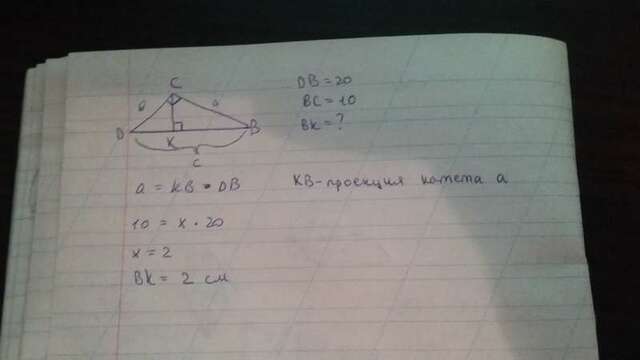 C
DB = 20
в a
BC = 10
BK = ?
D K B
c
a = KB • DB KB - проекция катета a
10 = x • 20
x = 2
BK = 2 см